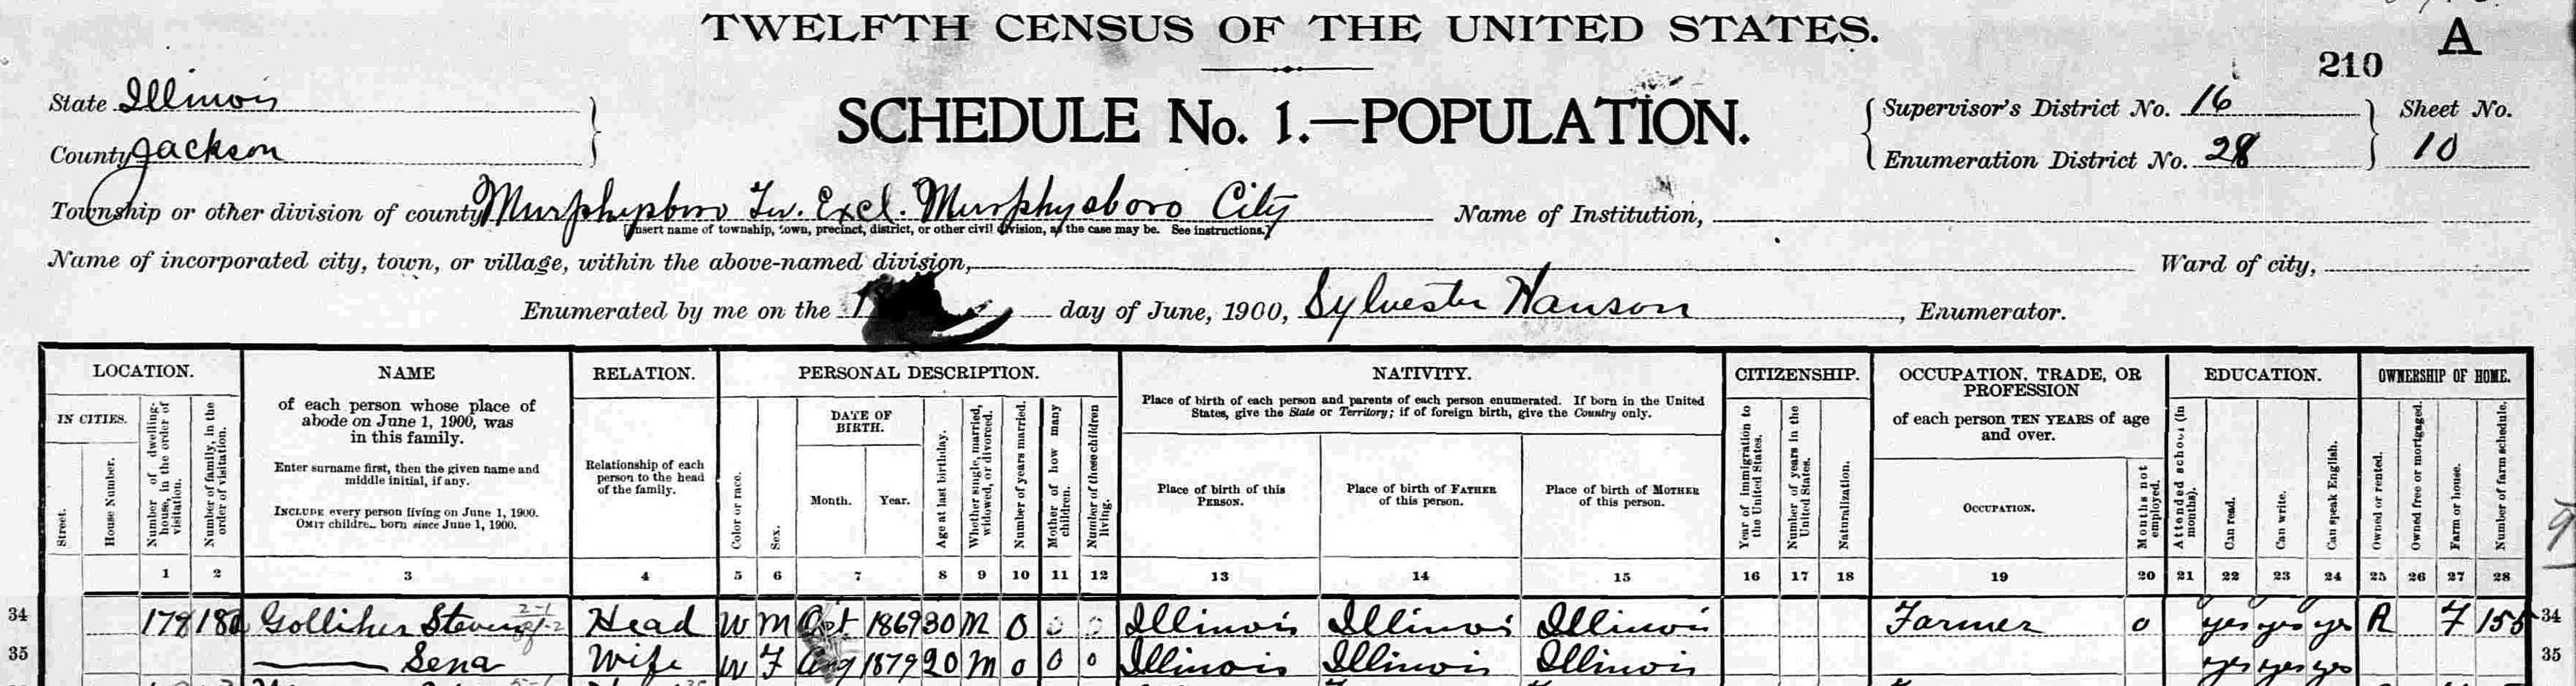 TWELFTH CENSUS OF THE UNITED STATES.
A
210
State Illinois
SCHEDULE No. 1.—POPULATION.
Supervisor's District No. 16
Sheet No.
County Jackson
Enumeration District No. 28
10
Township or other division of county Murphysboro Tw. Excl. Murphysboro City
Name of Institution,
[Insert name of township, town, precinct, district, or other civil division, as the case may be. See instructions.]
Name of incorporated city, town, or village, within the above-named division,
Ward of city,
Enumerated by me on the day of June, 1900, Sylvester Hanson, Enumerator.
LOCATION.
IN CITIES.
Street.
House Number.
Number of dwelling-house, in the order of visitation.
Number of family, in the order of visitation.
NAME
of each person whose place of
abode on June 1, 1900, was
in this family.
Enter surname first, then the given name and
middle initial, if any.
INCLUDE every person living on June 1, 1900.
OMIT children born since June 1, 1900.
RELATION.
Relationship of each
person to the head
of the family.
PERSONAL DESCRIPTION.
Color or race.
Sex.
DATE OF
BIRTH.
Month.
Year.
Age at last birthday.
Whether single, married, widowed, or divorced.
Number of years married.
Mother of how many children.
Number of these children living.
NATIVITY.
Place of birth of each person and parents of each person enumerated. If born in the United
States, give the State or Territory; if of foreign birth, give the Country only.
Place of birth of this
PERSON.
Place of birth of FATHER
of this person.
Place of birth of MOTHER
of this person.
CITIZENSHIP.
Year of immigration to the United States.
Number of years in the United States.
Naturalization.
OCCUPATION, TRADE, OR
PROFESSION
of each person TEN YEARS of age
and over.
OCCUPATION.
Months not employed.
EDUCATION.
Attended school (in months).
Can read.
Can write.
Can speak English.
OWNERSHIP OF HOME.
Owned or rented.
Owned free or mortgaged.
Farm or house.
Number of farm schedule.
1 2 3 4 5 6 7 8 9 10 11 12 13 14 15 16 17 18 19 20 21 22 23 24 25 26 27 28
34 179 180 Golliher Head W M Oct 1869 30 M 0 0 0 Illinois Illinois Illinois Farmer 0 yes yes yes R F 155 34
35 Sena Wife W F Aug 1879 20 M 0 0 0 Illinois Illinois Illinois yes yes yes 35